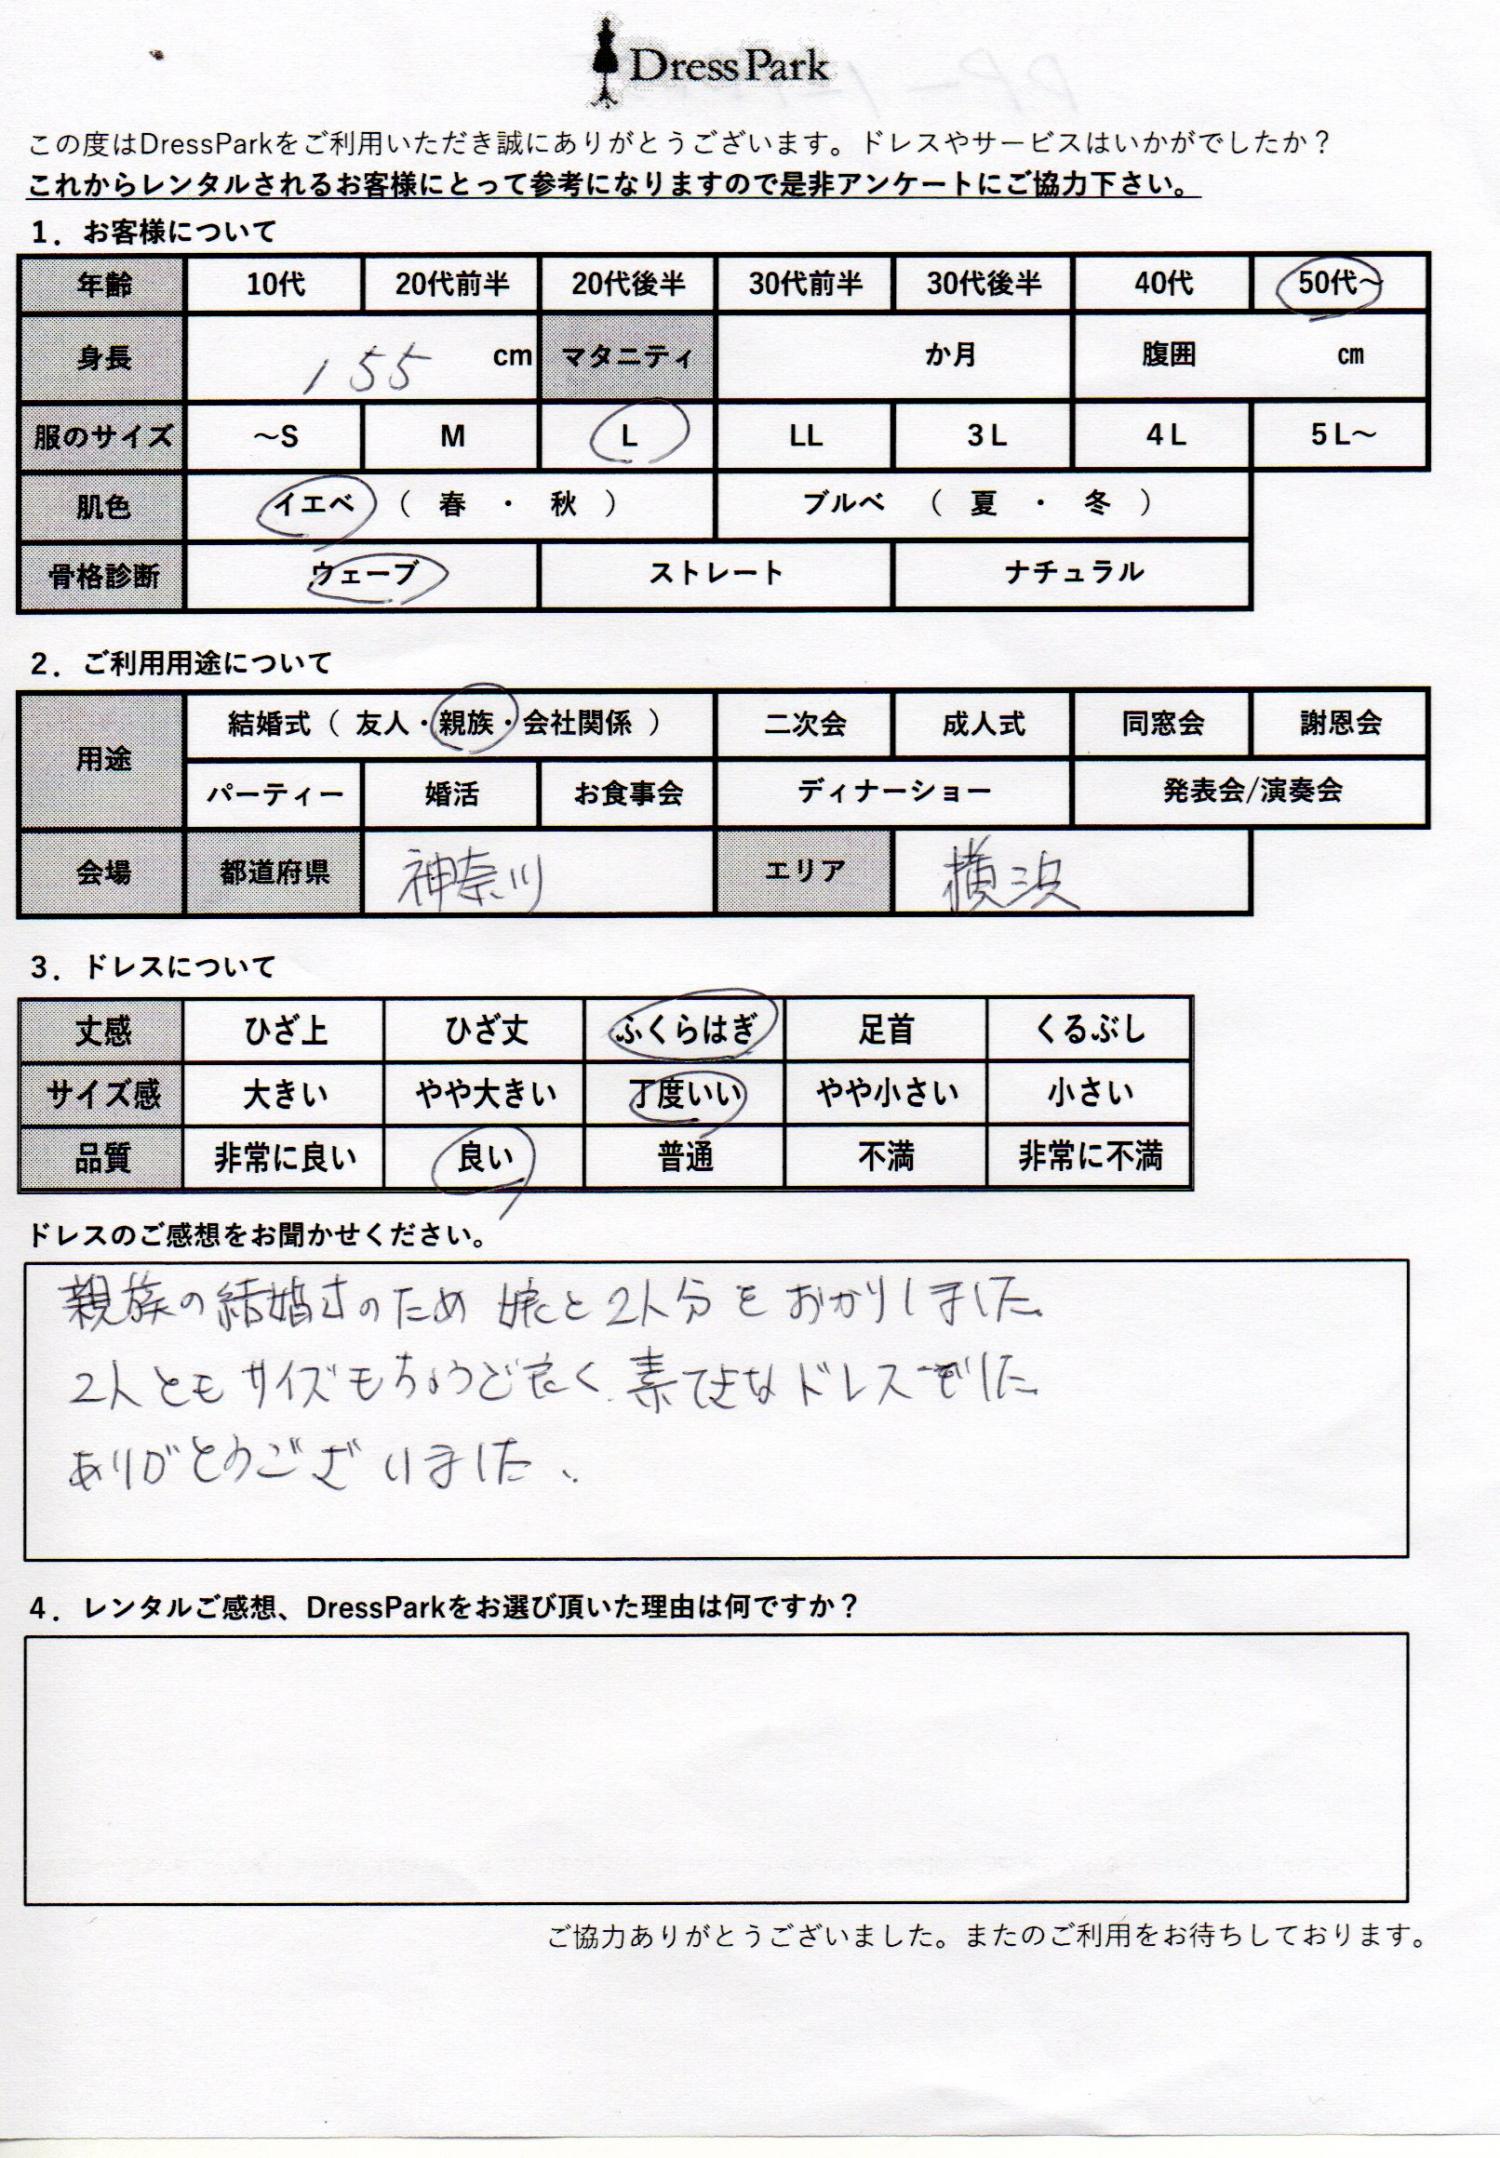 DressPark
この度はDressParkをご利用いただき誠にありがとうございます。ドレスやサービスはいかがでしたか？
これからレンタルされるお客様にとって参考になりますので是非アンケートにご協力下さい。
1．お客様について
年齢 10代 20代前半 20代後半 30代前半 30代後半 40代 50代～
身長 155 cm マタニティ か月 腹囲 ㎝
服のサイズ ～S M L LL 3L 4L 5L～
肌色 イエベ（ 春 ・ 秋 ） ブルベ （ 夏 ・ 冬 ）
骨格診断 ウェーブ ストレート ナチュラル
2．ご利用用途について
用途 結婚式（ 友人・親族・会社関係 ） 二次会 成人式 同窓会 謝恩会
パーティー 婚活 お食事会 ディナーショー 発表会/演奏会
会場 都道府県 神奈川 エリア 横浜
3．ドレスについて
丈感 ひざ上 ひざ丈 ふくらはぎ 足首 くるぶし
サイズ感 大きい やや大きい 丁度いい やや小さい 小さい
品質 非常に良い 良い 普通 不満 非常に不満
ドレスのご感想をお聞かせください。
親族の結婚式のため 娘と2人分をおかりしました。
2人ともサイズもちょうど良く、素てきなドレスでした
ありがとうございました、
4．レンタルご感想、DressParkをお選び頂いた理由は何ですか？
ご協力ありがとうございました。またのご利用をお待ちしております。